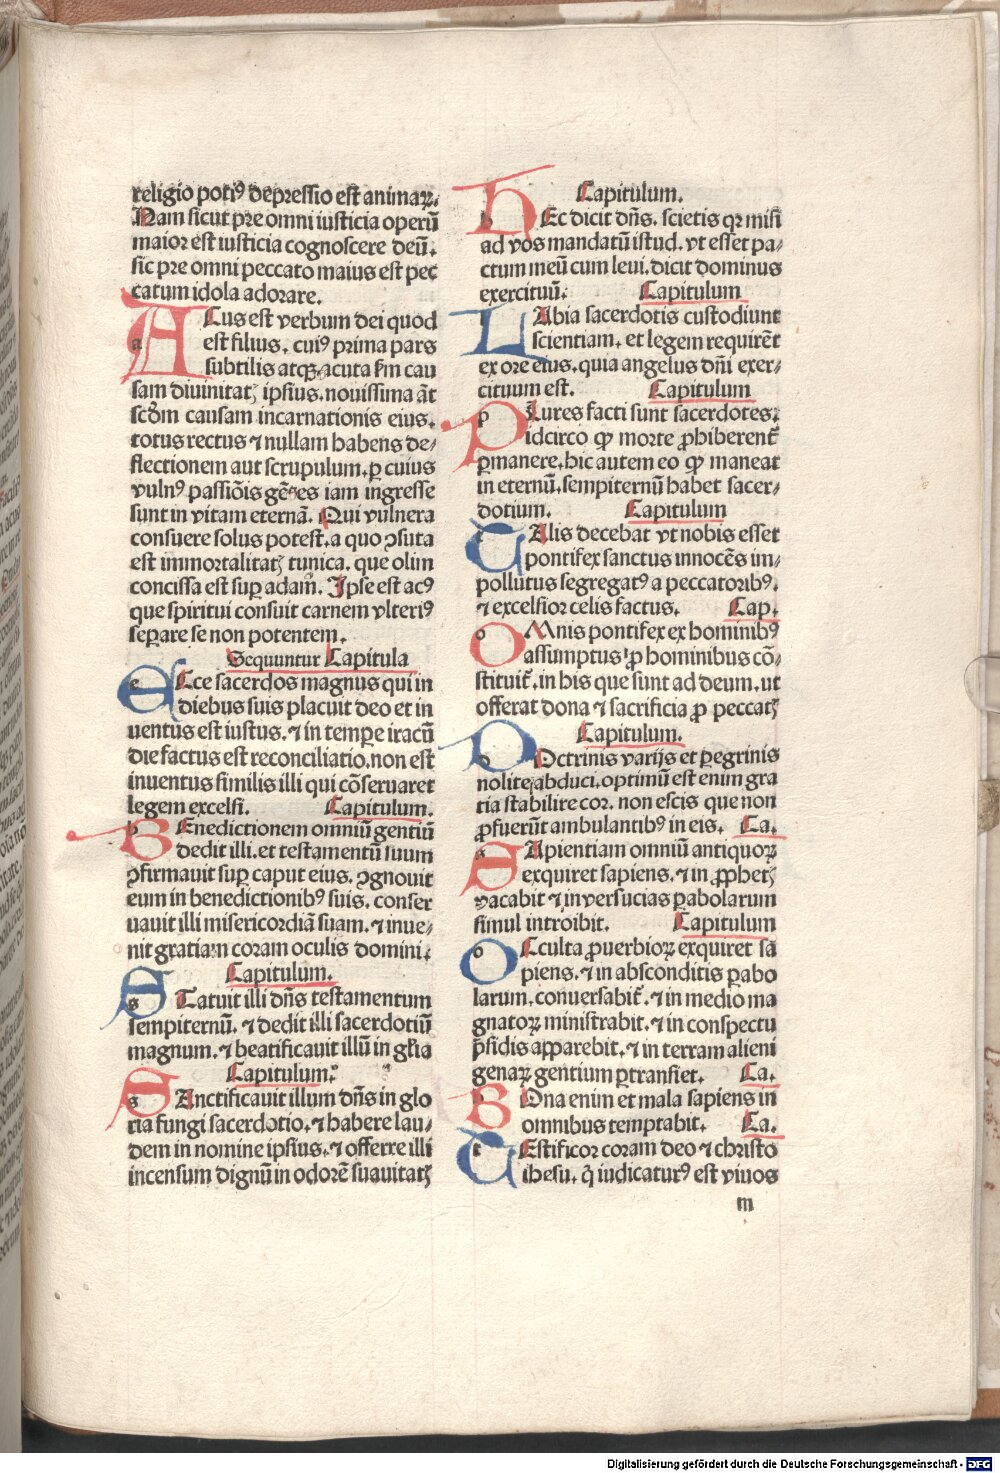 religio potiꝰ depressio est animaꝝ.
Nam sicut pre omni iusticia operū
maior est iusticia cognoscere deū.
sic pre omni peccato maius est pec
catum idola adorare.
ACus est verbum dei quod
est filius. cuiꝰ prima pars
subtilis atqꝫ acuta ẜm cau
sam diuinitatꝭ ipsius. nouissima āt
scḋm causam incarnationis eius.
totus rectus ⁊ nullam habens de⸗
flectionem aut scrupulum. ꝑ cuius
vulnꝰ passiōis gētes iam ingresse
sunt in vitam eternā. Qui vulnera
consuere solus potest. a quo ꝯsuta
est immortalitatꝭ tunica. que olim
concissa est suꝑ adam. Ipse est acꝰ
que spiritui consuit carnem vlteriꝰ
seꝑare se non potentem.
Sequuntur Capitula
ECce sacerdos magnus qui in
diebus suis placuit deo et in
uentus est iustus. ⁊ in temꝑe iracū
die factus est reconciliatio. non est
inuentus similis illi qui cōseruaret
legem excelsi. Capitulum.
BEnedictionem omniū gentiū
dedit illi. et testamentū suum
ꝯfirmauit suꝑ caput eius. ꝯgnouit
eum in benedictionibꝰ suis. conser
uauit illi misericordiā suam. ⁊ inue⸗
nit gratiam coram oculis domini.
Capitulum.
STatuit illi dn̄s testamentum
sempiternū. ⁊ dedit illi sacerdotiū
magnum. ⁊ beatificauit illū in gl̄ia
Capitulum.
SAnctificauit illum dn̄s in glo
ria fungi sacerdotio. ⁊ habere lau⸗
dem in nomine ipsius. ⁊ offerre illi
incensum dignū in odorē suauitatꝭ
Capitulum.
HEc dicit dn̄s. scietis qꝛ misi
ad vos mandatū istud. vt esset pa⸗
ctum meū cum leui. dicit dominus
exercituū. Capitulum
LAbia sacerdotis custodiunt
scientiam. et legem requirēt
ex ore eius. quia angelus dn̄i exer⸗
cituum est. Capitulum
PLures facti sunt sacerdotes.
idcirco ꝙ morte ꝓhiberent̄
ꝑmanere. hic autem eo ꝙ maneat
in eternū. sempiternū habet sacer⸗
dotium. Capitulum
TAlis decebat vt nobis esset
pontifex sanctus innocēs im⸗
pollutus segregatꝰ a peccatoribꝰ.
⁊ excelsior celis factus. Cap.
OMnis pontifex ex hominibꝰ
assumptus ꝓ hominibus cō⸗
stituit̄. in his que sunt ad deum. ut
offerat dona ⁊ sacrificia ꝓ peccatꝭ
Capitulum.
DOctrinis varijs et ꝑegrinis
nolite abduci. optimū est enim gra
tia stabilire cor. non escis que non
ꝓfuerūt ambulantibꝰ in eis. Ca.
SApientiam omniū antiquoꝝ
exquiret sapiens. ⁊ in ꝓphetꝭ
vacabit ⁊ in versucias ꝑabolarum
simul introibit. Capitulum
OCculta ꝓuerbioꝝ exquiret sa
piens. ⁊ in absconditis ꝑabo
larum. conuersabit̄. ⁊ in medio ma
gnatoꝝ ministrabit. ⁊ in conspectu
p̄sidis apparebit. ⁊ in terram alieni
genaꝝ gentium ꝑtransiet. Ca.
BOna enim et mala sapiens in
omnibus temptabit. Ca.
TEstificor coram deo ⁊ christo
ihesu. q̇ iudicaturꝰ est viuos
m
Digitalisierung gefördert durch die Deutsche Forschungsgemeinschaft - DFG